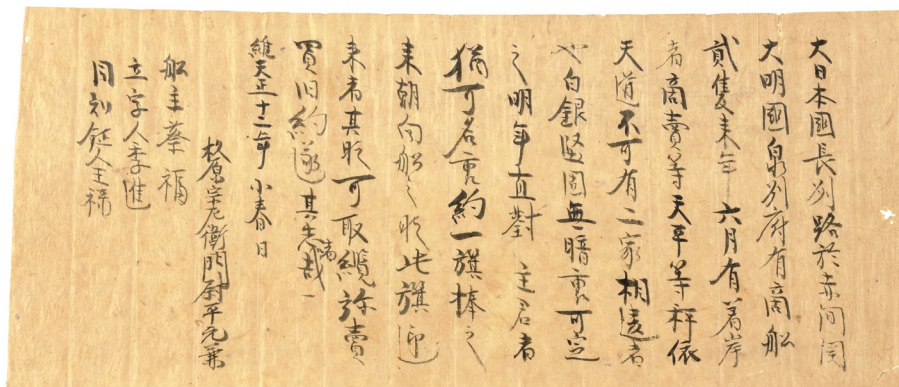 大日本國長州路於赤間関
大明國泉州府有商船
貳隻来年六月有着岸
者商賣等天平等秤依
天道不可有二家相違者
也白銀堅固無暗裏可定
之明年直對主君者
猶可名裏約一旗捧之
来朝向船之時此旗迎
来者其時可取纜弥賣
買旧約遂其志者哉
維天正十二年小春日
原宗左衛門尉平元兼
船主蔡福
立字人李進
同列 人王禄